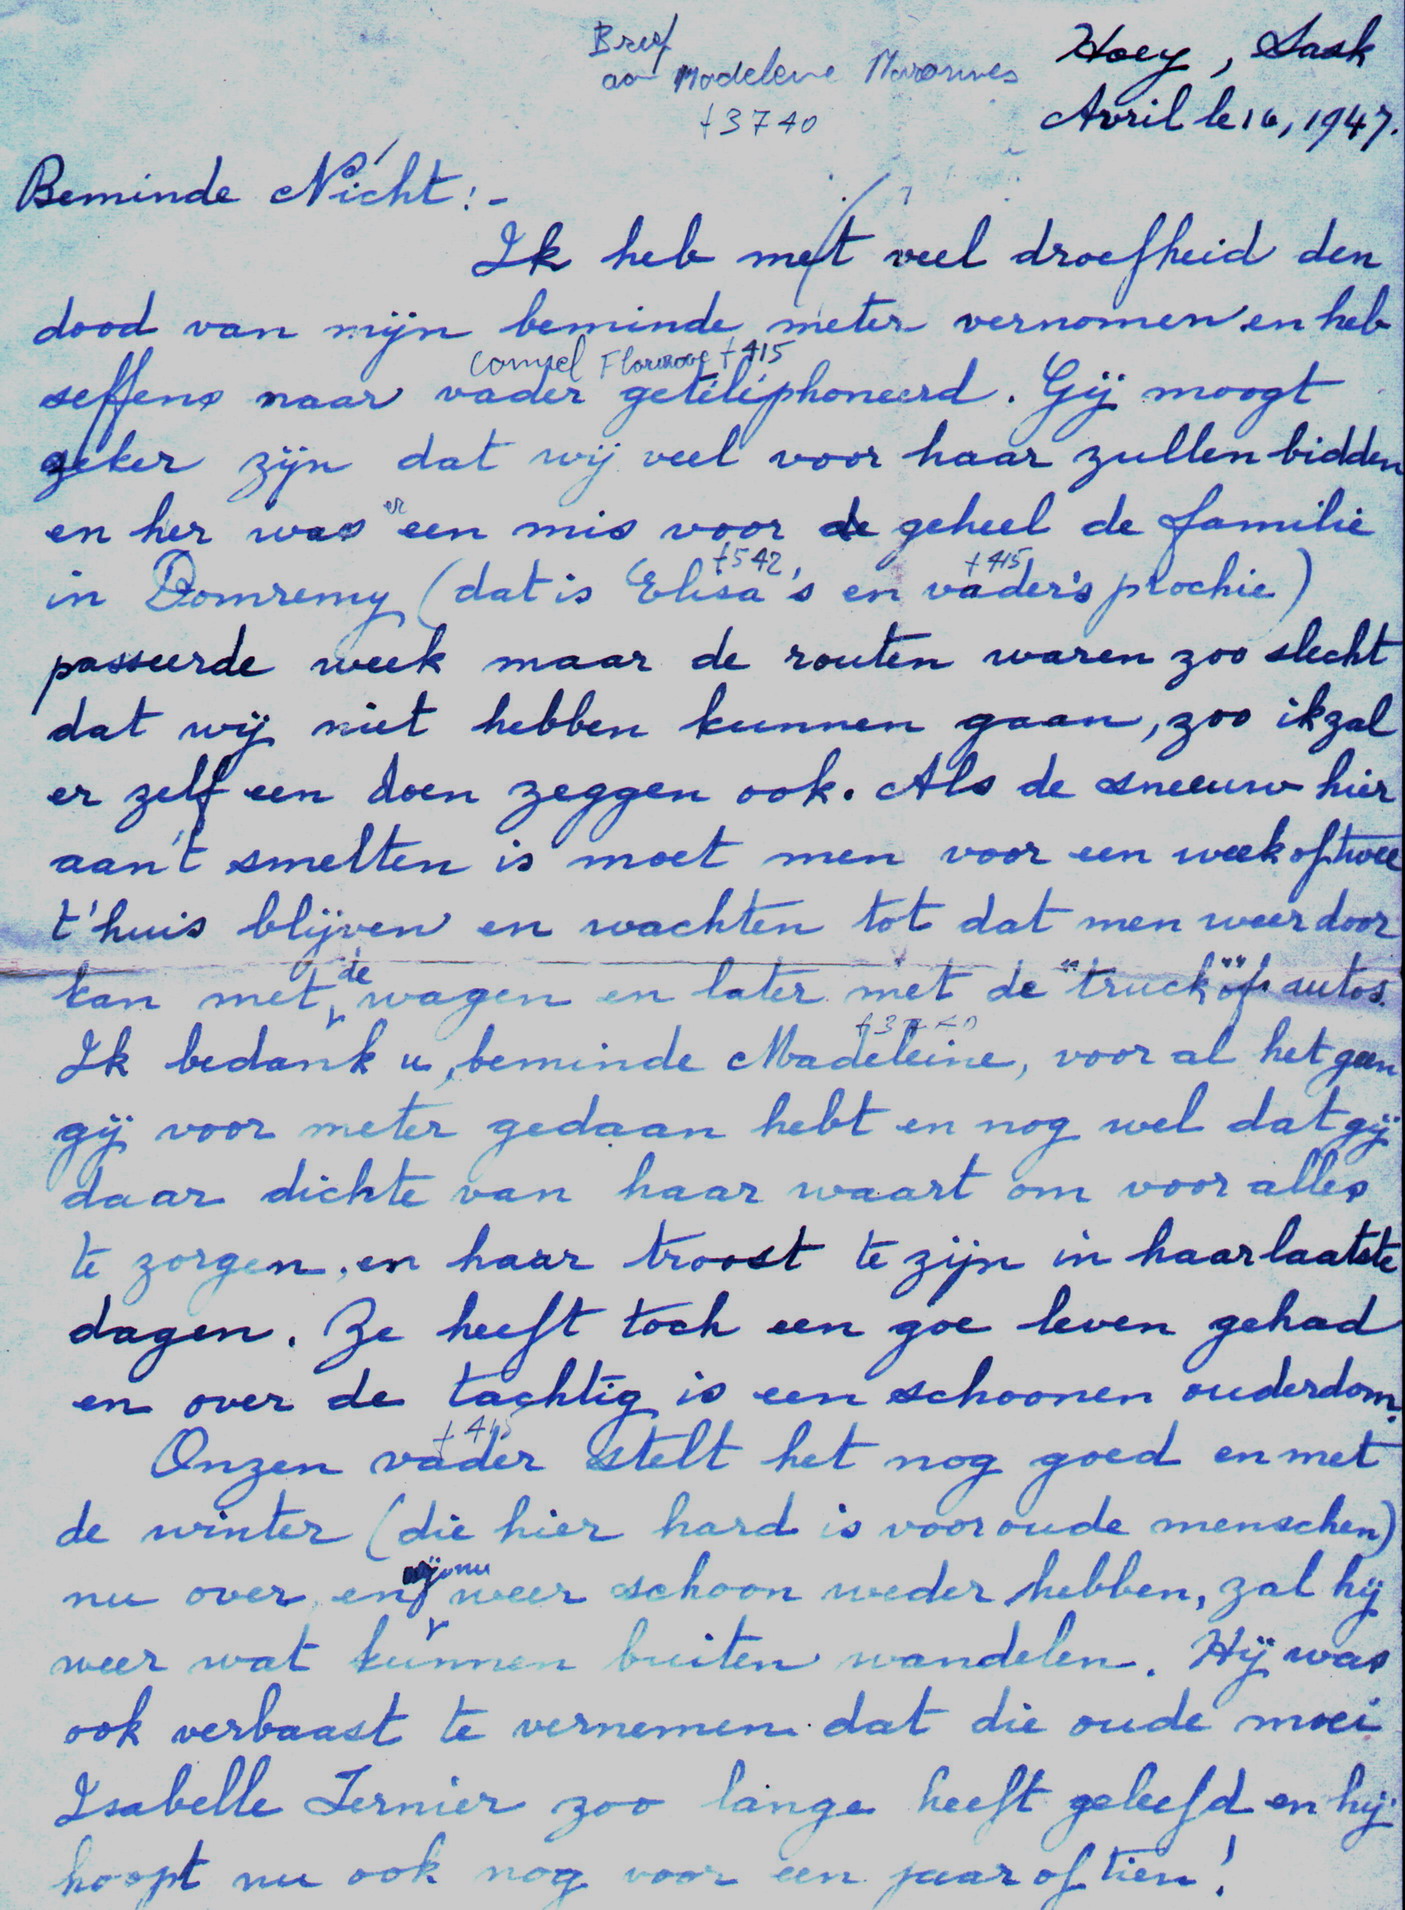 Brief Hoey, Sask
aan Madeleine
+3740 Avril le 16, 1947.
Beminde Nicht:-
Ik heb met veel droefheid den
dood van mijn beminde meter vernomen en heb
Camiel +415
seffens naar vader getéléphoneerd. Gij moogt
zeker zijn dat wij veel voor haar zullen bidden
er
en her was een mis voor geheel de familie
+542 +415
in Domremy (dat is Elisa's en vader's prochie)
passeerde week maar de routen waren zoo slecht
dat wij niet hebben kunnen gaan, zoo ik zal
er zelf een doen zeggen ook. Als de sneeuw hier
aan't smelten is moet men voor een week of twee
t'huis blijven en wachten tot dat men weer door
de
kan met wagen en later met de "truck" of autos.
+3740
Ik bedank u, beminde Madeleine, voor al het geen
gij voor meter gedaan hebt en nog wel dat gij
daar dichte van haar waart om voor alles
te zorgen, en haar troost te zijn in haar laatste
dagen. Ze heeft toch een goe leven gehad
en over de tachtig is een schoonen ouderdom.
+415
Onzen vader stelt het nog goed en met
de winter (die hier hard is voor oude menschen)
wij nu
nu over, en weer schoon weder hebben, zal hij
weer wat kunnen buiten wandelen. Hij was
ook verbaast te vernemen dat die oude moei
Isabelle Ternier zoo lange heeft geleefd en hij
hoopt nu ook nog voor een jaar of tien!